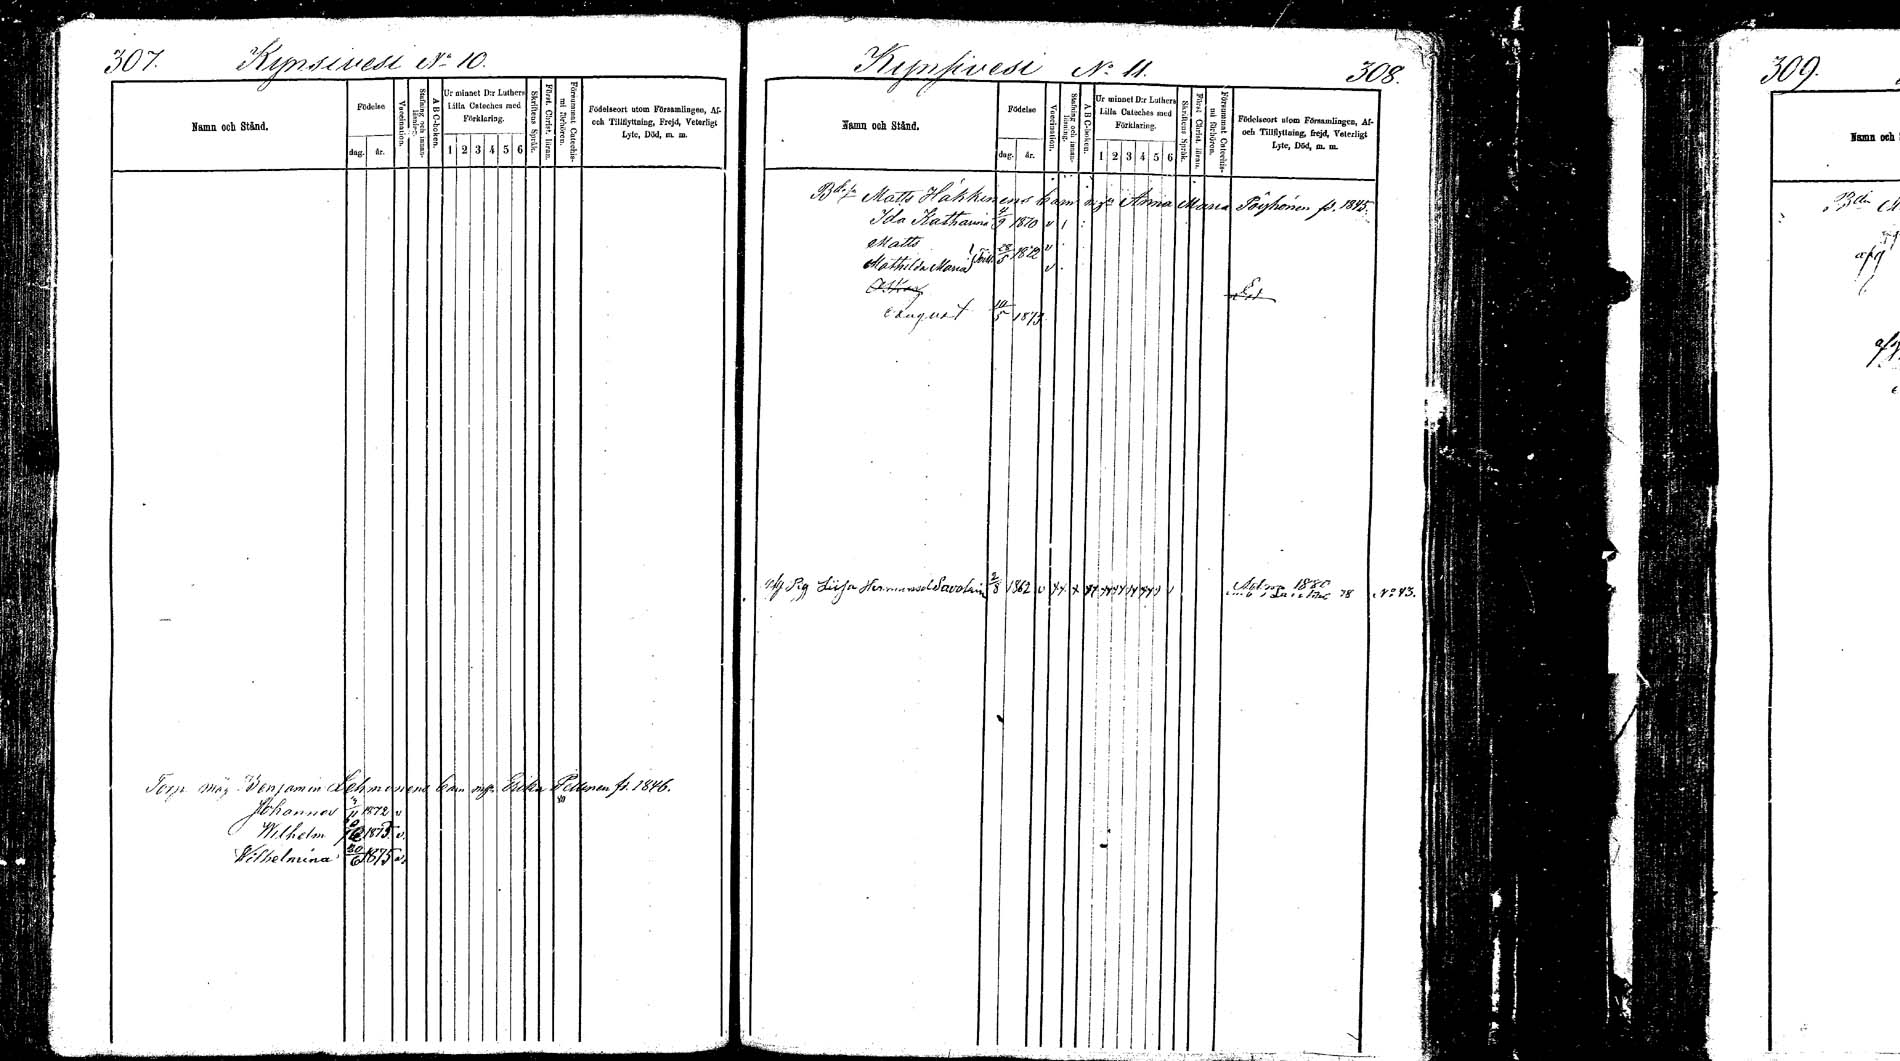 307. Kynsivesi No 10.
Namn och Stånd.
Födelse
dag. år.
Vaccination.
Stafning och innanläsning.
A B C-boken.
Ur minnet D:r Luthers Lilla Cateches med Förklaring.
1 2 3 4 5 6
Skriftens Språk.
Först. Christ. läran.
Försummat Catechismi förhören.
Födelseort utom Församlingen, Af- och Tillflyttning, Frejd, Veterligt Lyte, Död, m. m.
Torp Benjamin Lehmonens barn Pellinen fs. 1846.
Johannes 1872 v
Wilhelm 1873 v.
Wilhelmina 20/6 1875 v.
Kynsivesi No 11. 308.
Namn och Stånd.
Födelse
dag. år.
Vaccination.
Stafning och innanläsning.
A B C-boken.
Ur minnet D:r Luthers Lilla Cateches med Förklaring.
1 2 3 4 5 6
Skriftens Språk.
Först. Christ. läran.
Försummat Catechismi förhören.
Födelseort utom Församlingen, Af- och Tillflyttning, frejd, Veterligt Lyte, Död, m. m.
Matts Häkkinens barn Anna Maria Pöyhönen fs. 1845.
Ida Katharina 1870 v
Matts 28/5 1872 v
Mathilda Maria v
August 14/5 1873
Pig Liisa Hermansd Savolain 2/8 1862 v
1880 78 No 43.
309.
Namn och